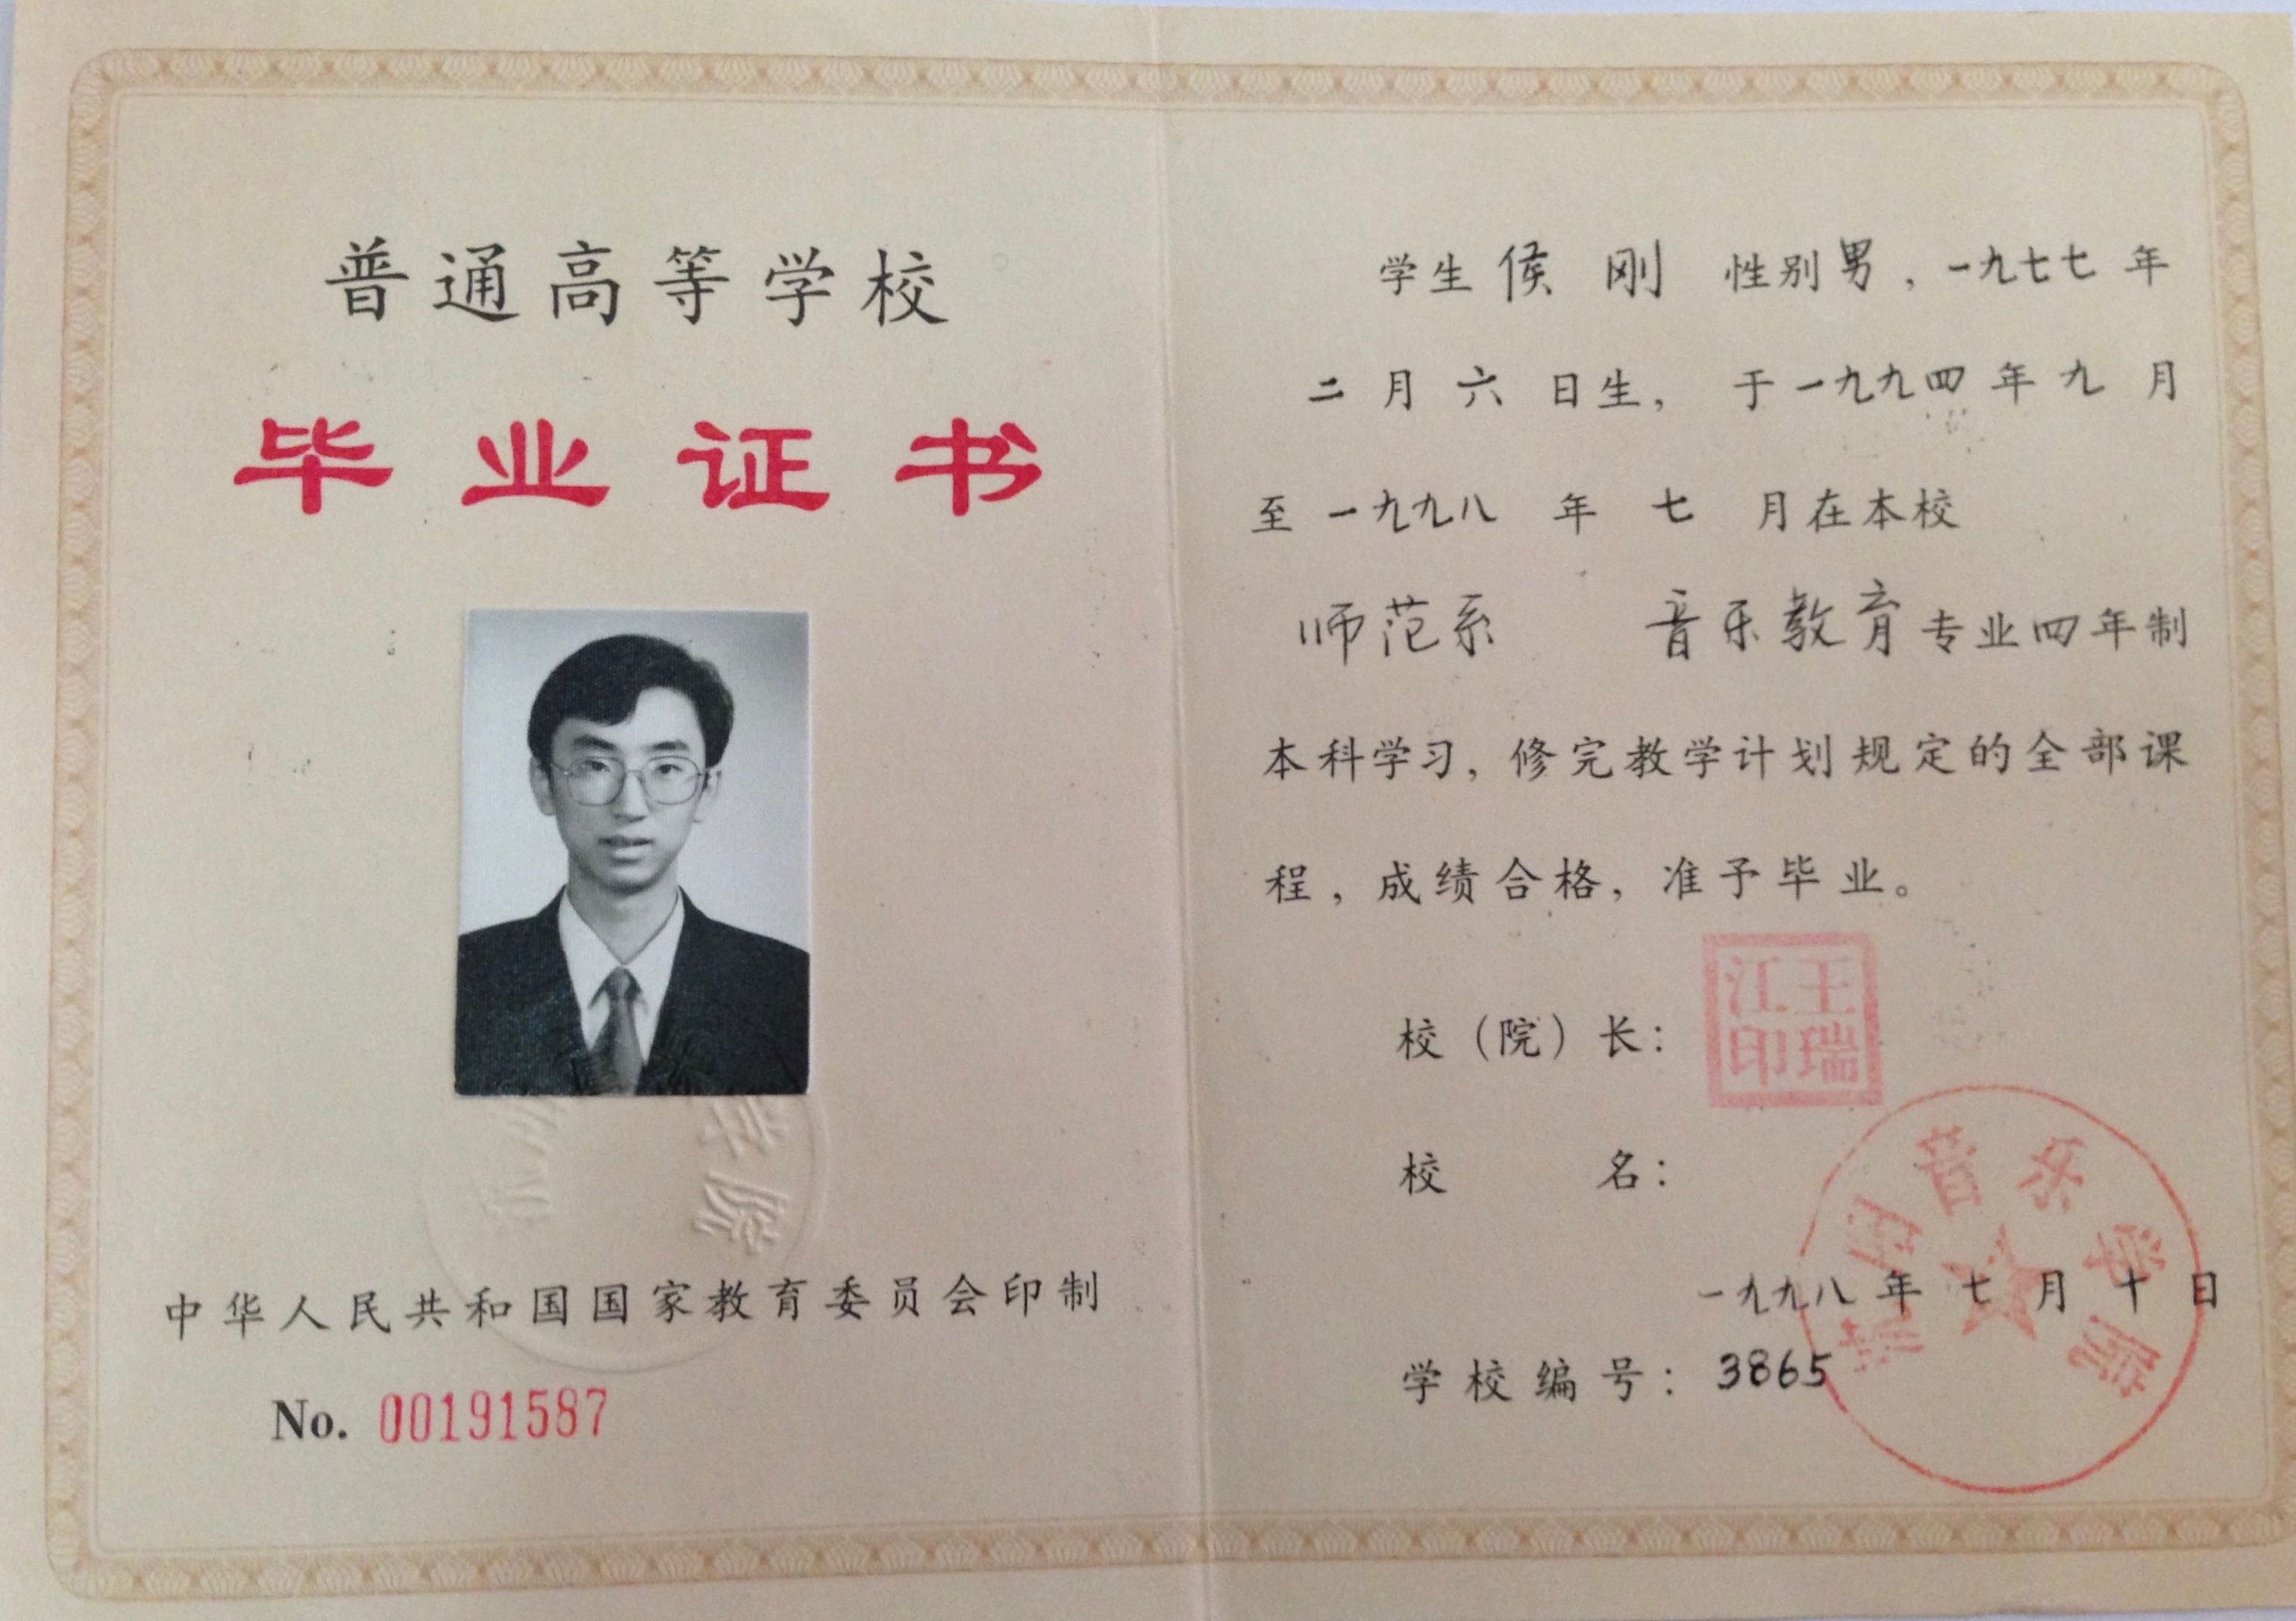 普通高等学校
毕业证书
中华人民共和国国家教育委员会印制
No. 00191587
学生 侯 刚 性别男，一九七七 年
二 月 六 日生， 于一九九四 年 九 月
至 一九九八 年 七 月在本校
师范系 音乐教育专业四年制
本科学习，修完教学计划规定的全部课
程，成绩合格，准予毕业。
校（院）长：
王瑞江印
校 名：
音乐学院
一九九八 年 七 月 十 日
学校编号：3865